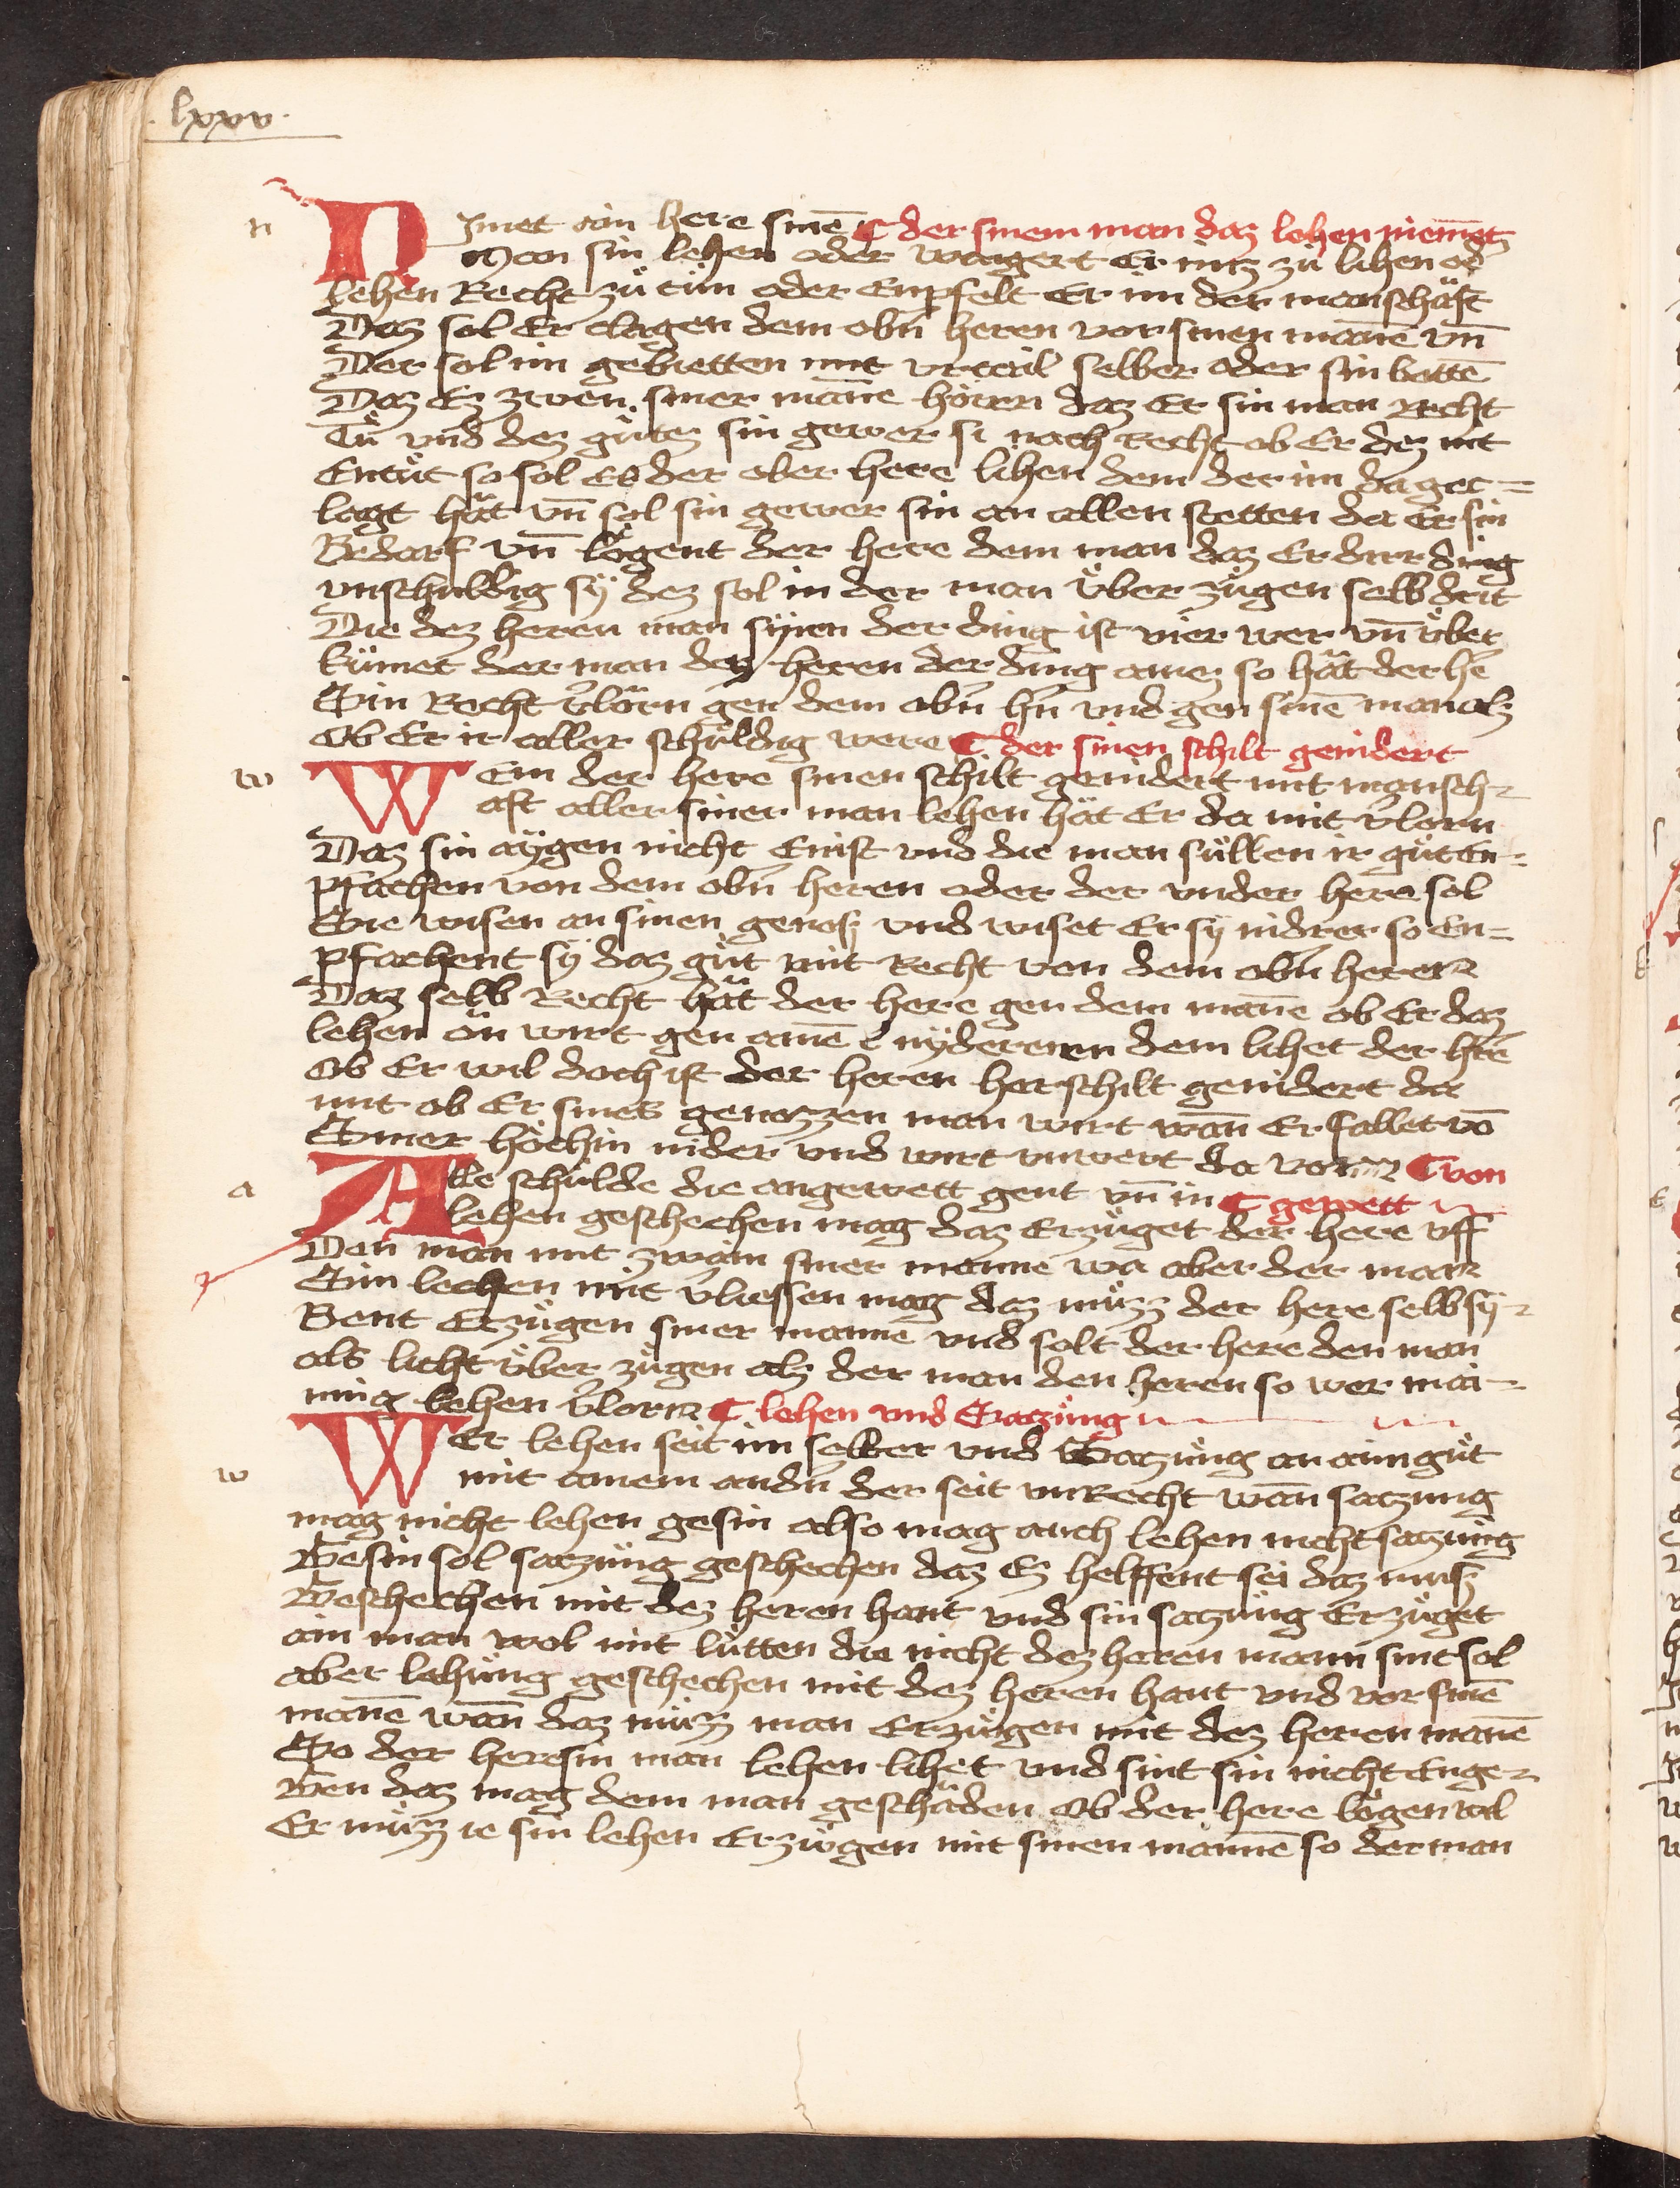 . lxxv.
n
NJmet ain here sinē ¶ der sinem man daz lehen niem̄et
Man sin lehen oder wagert er mitz zů lihen od̄
lehen Recht zů tůn oder Empfelt Er im der manschäft
Daz sol Er clagen dem obn̄ heren vor sinen man̄e vn̄
Der sol im gebietten mit vrtail selber oder sin bottē
Daz Ez zwen siner man̄e hörrn daz Er sin man Recht
Tů vnd dez gůtez sin gewer si nach Recht ob Er dez nit
Entůt so sol es der ober here lihen dem der im da gec=
lagt hät vn̄ sol sin gewer sin an allen stetten da Er sin
Bedarf vn̄ lögent der here dem man daz Er der ding
vnschuldig sÿ dez sol in der man v̈ber zůgen selb drit
Die dez heren man sÿnen der ding ist vier wer vn̄ v̈ber
kümet der man dez heren der ding ainez so hät der h̄e
Sin Recht v̄lörn gen dem obn̄ hn̄ vnd gen sinē man alz
Ob Er ir aller schuldig were ¶ der sinen schilt genidert
w
WEm der here sinen schilt genidert mit mansch=
aft aller siner man lehen hät Er da mit v̄lorn
Daz sin aÿgen nicht Enist vnd die man süllen ir gůt en=
pfachen von dem obn̄ heren oder der vnder here sol
Sie wisen an sinen genosz vnd wiset Er sÿ nidrer so en=
pfachent sÿ daz gůt mit Recht von dem obn̄ heren
Daz selb Recht hät der here gen dem man̄e ob Er daz
lehen ön wirt gen ainē nÿdereren dem lihet der hr̄e
Ob Er wil doch ist der heren herschilt genidert da
mit ob Er sines genozzen man wirt wan̄ Er fallet vō
Siner höchin nider vnd wirt vnwert da von ¶ von
a
Alle schulde die angewett gent vn̄ in ¶ gewett
lehen geschechen mag daz Erzůget der here vff
Den man mit zwain siner manne wa aber der man
Sim lechen mit v̄liessen mag daz můzz der here selb sÿ=
Bent Erzůgen siner mannē vnd solt der here den man
als licht v̈ber zůgen alz der man den heren so wer mai=
nnig lehen v̄lorn ¶ lehen vnd Saczung
w
WEr lehen seit im selber vnd Saczung an aim gůt
mit ainem andn̄ der seit vnRecht wan̄ saczung
mag nicht lehen gesin also mag auch lehen nicht saczung
Gesin sol saczung geschechen daz Ez helffent sei daz mus
Geschechen mit dez heren hant vnd sin saczung Erzůget
ain man wol mit lütten die nicht dez heren mann sint sol
aber lehung geschechen mit dez heren hant vnd vor sinē
man̄e wan̄ daz můz man Erzůgen mit dez heren man̄e
So der here sin man lehen lihet vnd sint sin nicht enge=
Gen daz mag dem man geschäden ob der here lögen wil
Er můz ie sin lehen Erzůgen mit sinen mannē so der man